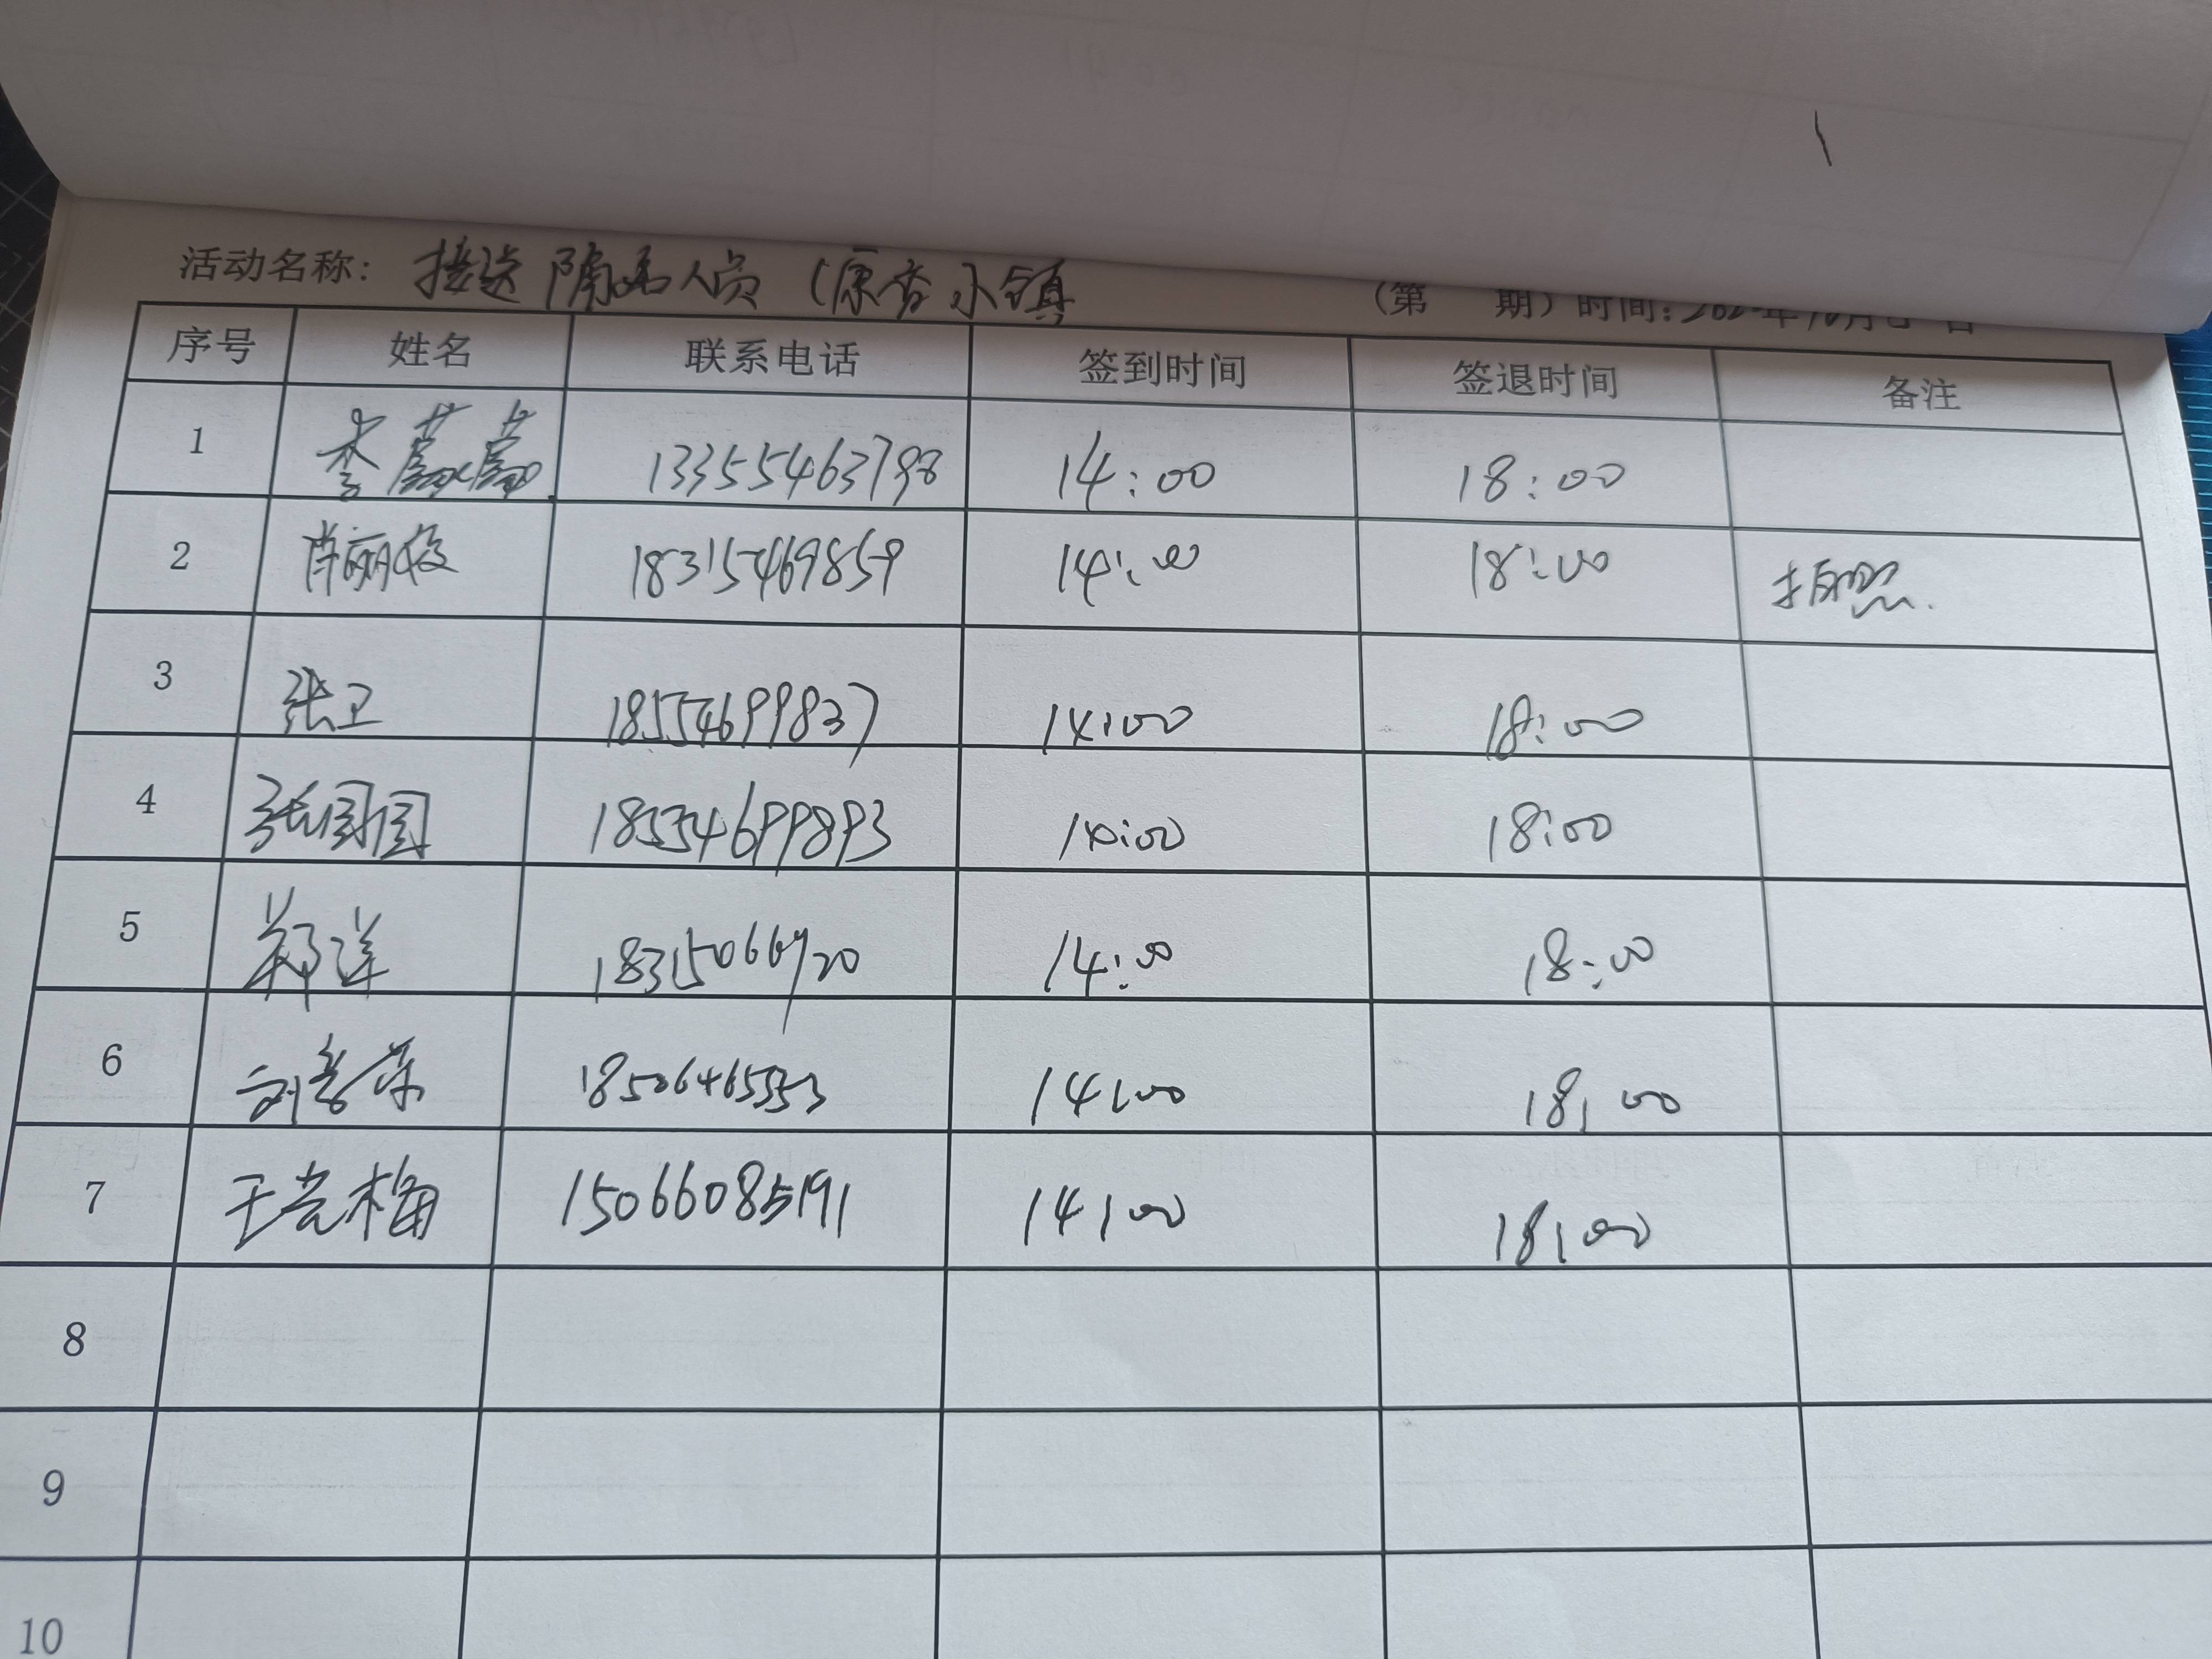 活动名称: 接送隔离人员 (康杏小镇
(第 期) 时间:
序号 姓名 联系电话 签到时间 签退时间 备注
1 李蒙蒙 13355463798 14:00 18:00
2 肖丽俊 18315469859 14:00 18:00 拍照.
3 张卫 18554699837 14:00 18:00
4 张园园 18554699893 14:00 18:00
5 郑洋 14:00 18:00
6 刘芳荣 14:00 18:00
7 王光梅 15066085191 14:00 18:00
8
9
10